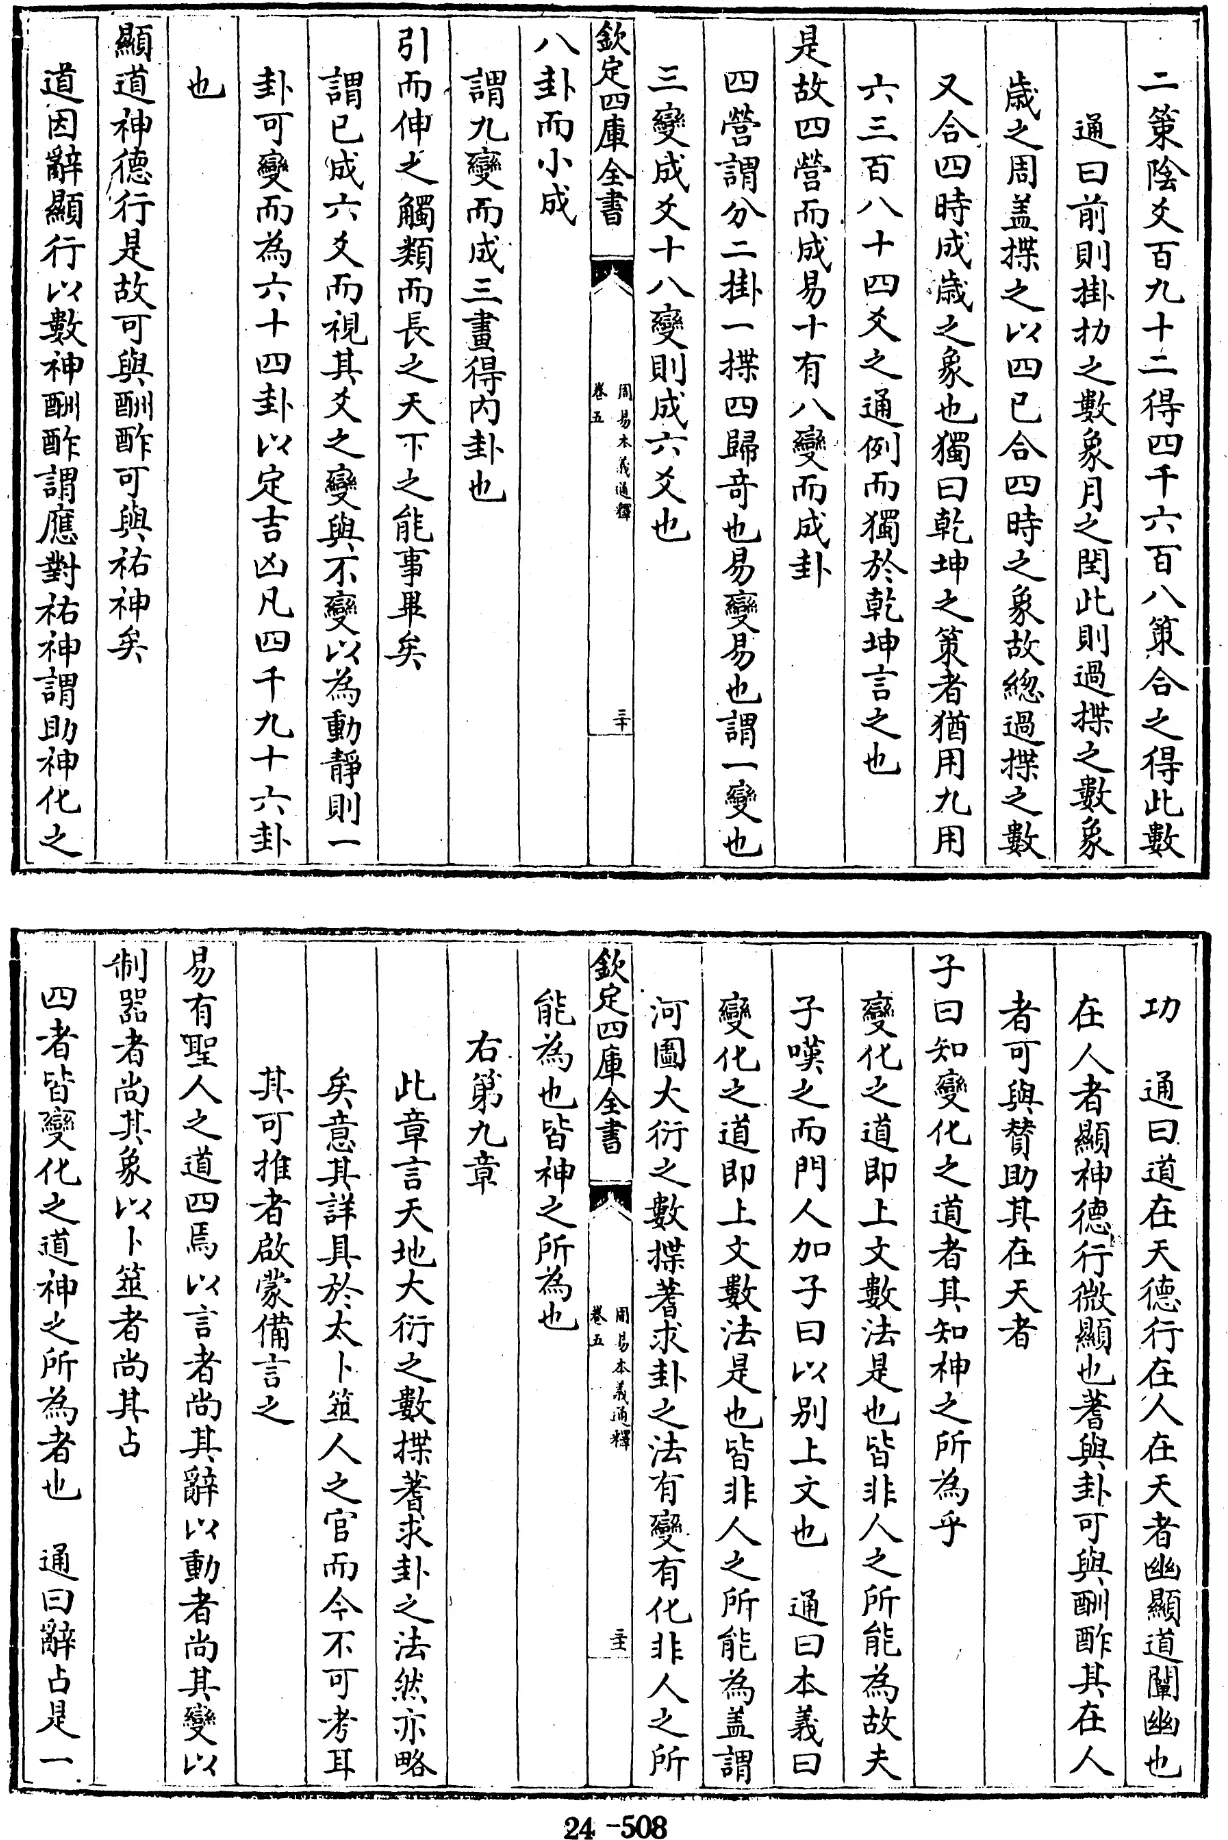 二策陰爻百九十二得四千六百八策合之得此數
通曰前則掛扐之數象月之閏此則過揲之數象
歳之周盖揲之以四已合四時之象故總過揲之數
又合四時成歳之象也獨曰乾坤之策者猶用九用
六三百八十四爻之通例而獨於乾坤言之也
是故四營而成易十有八變而成卦
四營謂分二掛一揲四歸奇也易變易也謂一變也
三變成爻十八變則成六爻也
欽定四庫全書
周易本義通釋
卷五
三十
八卦而小成
謂九變而成三畫得内卦也
引而伸之觸類而長之天下之能事畢矣
謂已成六爻而視其爻之變與不變以為動靜則一
卦可變而為六十四卦以定吉凶凡四千九十六卦
也
顯道神德行是故可與酬酢可與祐神矣
道因辭顯行以數神酬酢謂應對祐神謂助神化之
功　通曰道在天德行在人在天者幽顯道闡幽也
在人者顯神德行微顯也蓍與卦可與酬酢其在人
者可與贊助其在天者
子曰知變化之道者其知神之所為乎
變化之道即上文數法是也皆非人之所能為故夫
子嘆之而門人加子曰以別上文也　通曰本義曰
變化之道即上文數法是也皆非人之所能為盖謂
河圖大衍之數揲蓍求卦之法有變有化非人之所
欽定四庫全書
周易本義通釋
卷五
三十一
能為也皆神之所為也
右第九章
此章言天地大衍之數揲蓍求卦之法然亦略
矣意其詳具於太卜筮人之官而今不可考耳
其可推者啟蒙備言之
易有聖人之道四焉以言者尚其辭以動者尚其變以
制器者尚其象以卜筮者尚其占
四者皆變化之道神之所為者也　通曰辭占是一
24-508